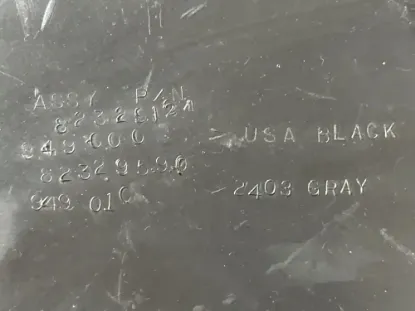 ASSY P/N
949 000 - USA BLACK
82329590
949 010 - 2403 GRAY